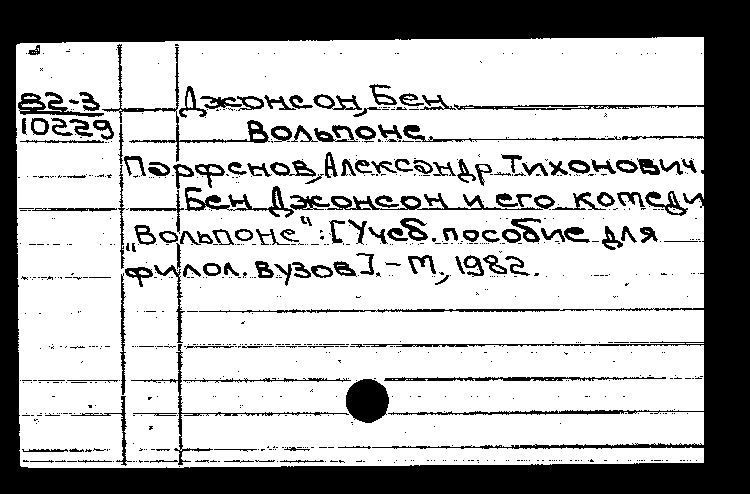 82-3
10229
Джонсон, Бен.
Вольпоне.
Парфенов, Александр Тихонович.
Бен Джонсон и его комеди
„Вольпоне“: [Учеб. пособие для
филол. вузов]. - М., 1982.